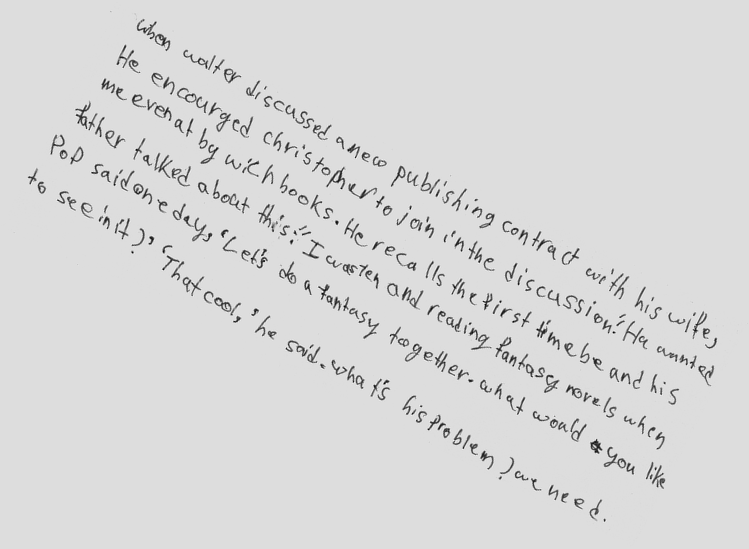 when walter discussed a new publishing contract with his wife,
He encourged christopher to join in the discussion. "He wanted
me even at by wich books. He recalls the first time be and his
father talked about this: "I was ten and reading fantasy novels when
Pop said one day, "Let's do a fantasy together. what would you like
to see in it?, "That cool," he said. what's his problem? we need.